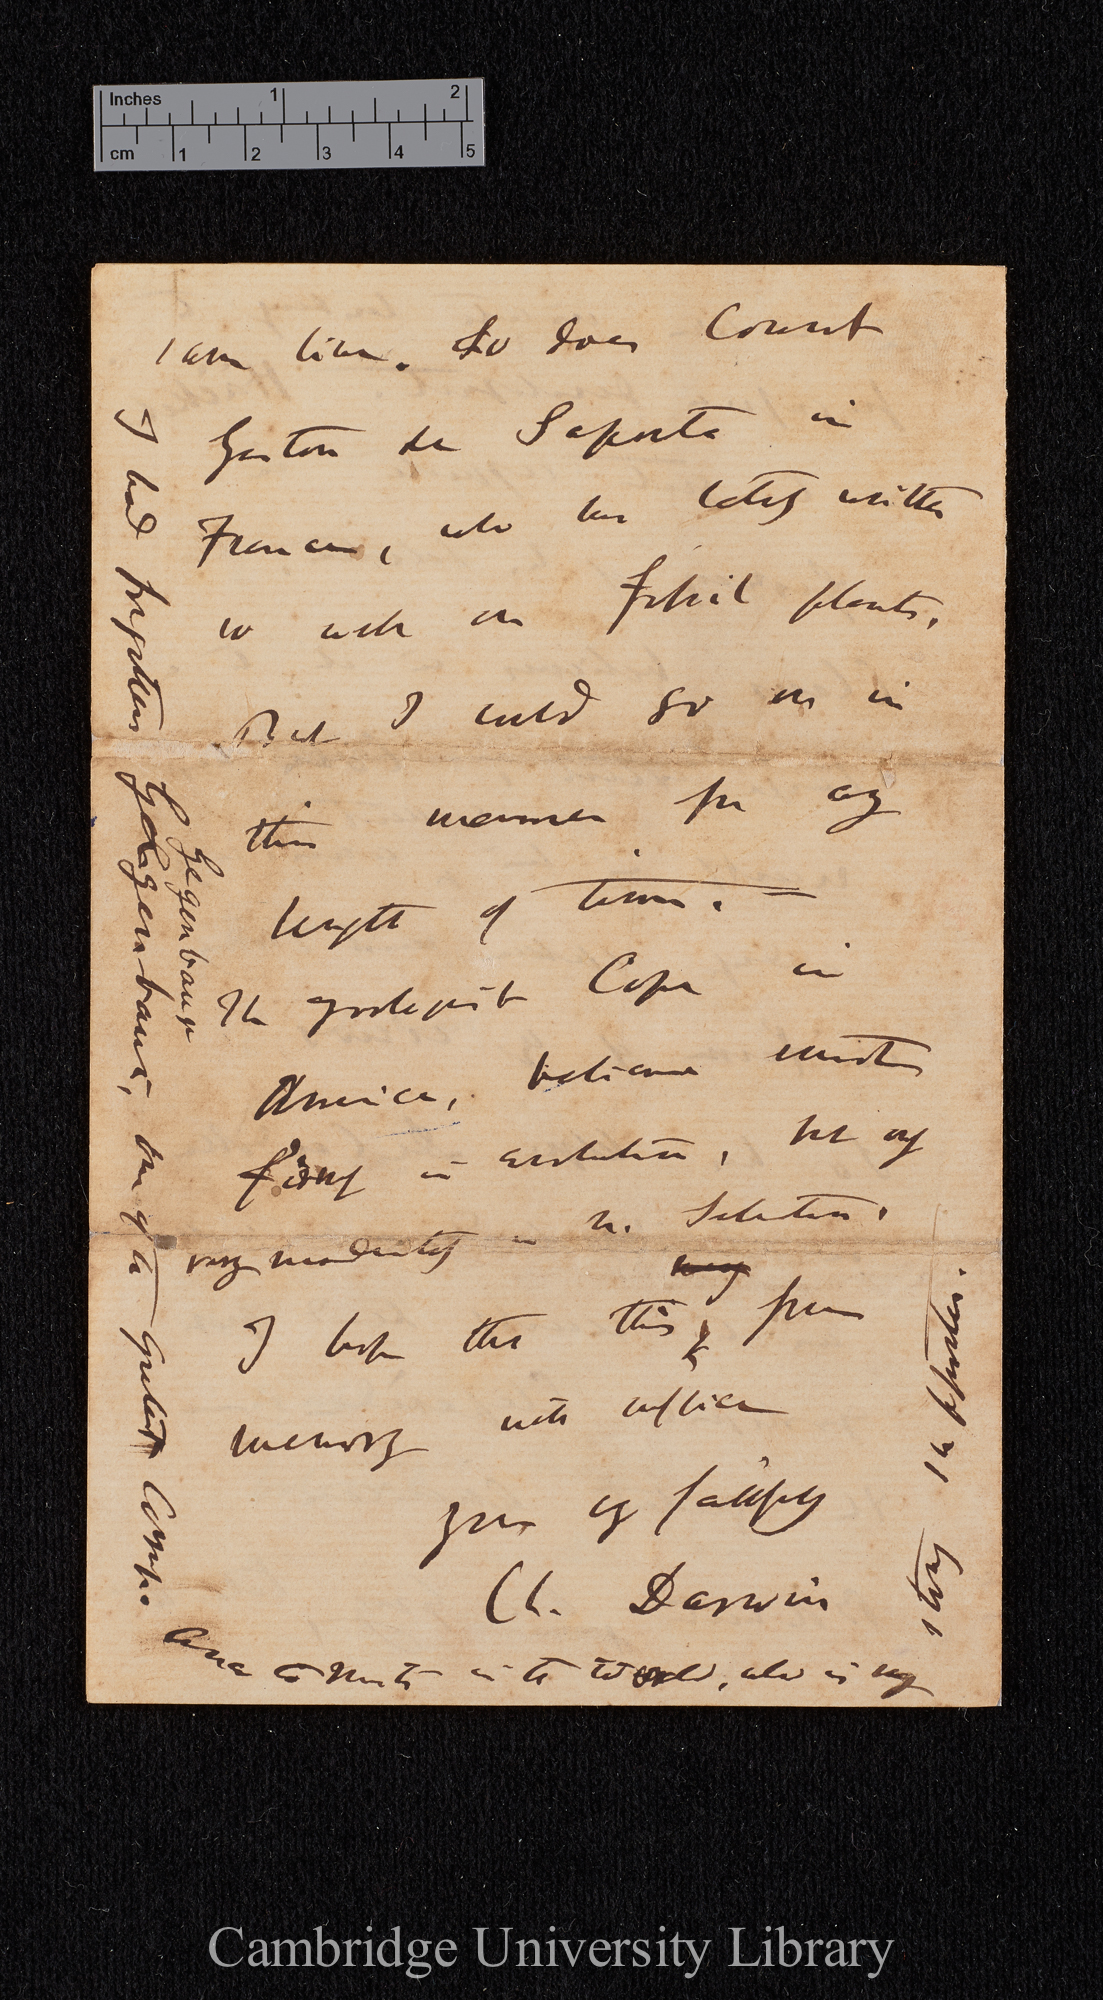 Inches 1 2
cm 1 2 3 4 5
same line. So does Count
Gaston de Saporta in
France, who has lately written
so well on Fossil plants.
But I could go on in
this manner for any
length of time. —
The zoologist Cope in
America, believes most
firmly in evolution, but only
very moderately in n. Selection.
I hope that this from
memory will suffice
yours very faithfully
Ch. Darwin
I had forgotten Gegenbaur, one of the greatest Comp.
Gegenbaur
Anatomists in the World, who is very
strong in
Cambridge University Library